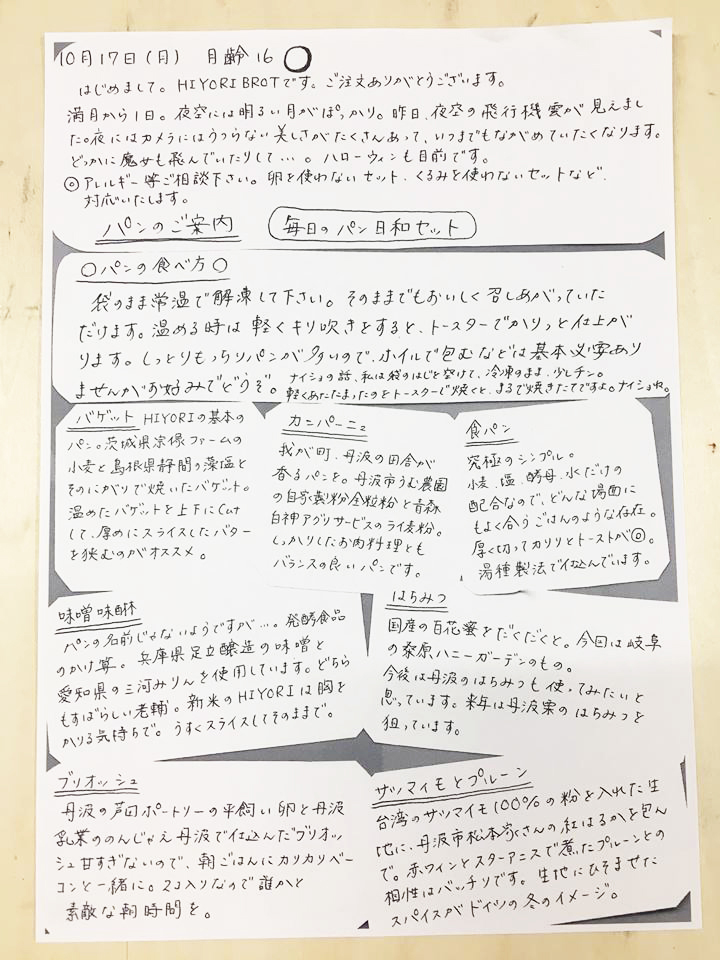 10月17日(月) 月齢16
はじめまして。HIYORI BROTです。ご注文ありがとうございます。
満月から1日。夜空には明るい月がぽっかり。昨日、夜空の飛行機雲が見えまし
た。夜にはカメラにはうつらない美しさがたくさんあって、いつまでもながめていたくなります。
どっかに魔女も飛んでいたりして…。ハローウィンも目前です。
◎アレルギー等ご相談下さい。卵を使わないセット、くるみを使わないセットなど、
対応いたします。
パンのご案内 毎日のパン日和セット
○パンの食べ方○
袋のまま常温で解凍して下さい。そのままでもおいしく召しあがっていた
だけます。温める時は軽くキリ吹きをすると、トースターでかりっと仕上が
ります。しっとりもっちりパンが多いので、ホイルで包むなどは基本必要あり
ませんがお好みでどうぞ。
ナイショの話、私は袋のはじを空けて、冷凍のまま、少しチン。
軽くあたたまったのをトースターで焼くと、まるで焼きたてですよ。ナイショね。
バゲット HIYORIの基本の
パン。茨城県宗禄ファームの
小麦と島根県静間の藻塩と
そのにがりで焼いたバゲット。
温めたバゲットを上下にCut
して、厚めにスライスしたバター
を挟むのがオススメ。
カンパーニュ
我が町、丹波の田舎が
香るパンを。丹波市うむ農園
の自家製粉全粒粉と青森
白神アグリサービスのライ麦粉。
しっかりしたお肉料理とも
バランスの良いパンです。
食パン
究極のシンプル。
小麦、塩、酵母、水だけの
配合なので、どんな場面に
もよく合うごはんのような存在。
厚く切ってカリリとトーストが◎。
湯種製法で仕込んでいます。
味噌味醂
パンの名前じゃないようですが…。発酵食品
のかけ算。兵庫県足立醸造の味噌と
愛知県の三河みりんを使用しています。どちら
もすばらしい老輔。新米のHIYORIは胸を
かりる気持ちで。うすくスライスしてそのままで。
はちみつ
国産の百花蜜をだくだくと。今回は岐阜
の桑原ハニーガーデンのもの。
今後は丹波のはちみつも使ってみたいと
思っています。来年は丹波栗のはちみつを
狙っています。
ブリオッシュ
丹波の芦田ポートリーの平飼い卵と丹波
乳業ののんじゃえ丹波で仕込んだブリオッ
シュ甘すぎないので、朝ごはんにカリカリベー
コンと一緒に。2コ入りなので誰かと
素敵な朝時間を。
サツマイモとプルーン
台湾のサツマイモ100%の粉を入れた生
地に、丹波市松本家さんの紅はるかを包ん
で。赤ワインとスターアニスで煮たプルーンとの
相性はバッチリです。生地にひそませた
スパイスがドイツの冬のイメージ。